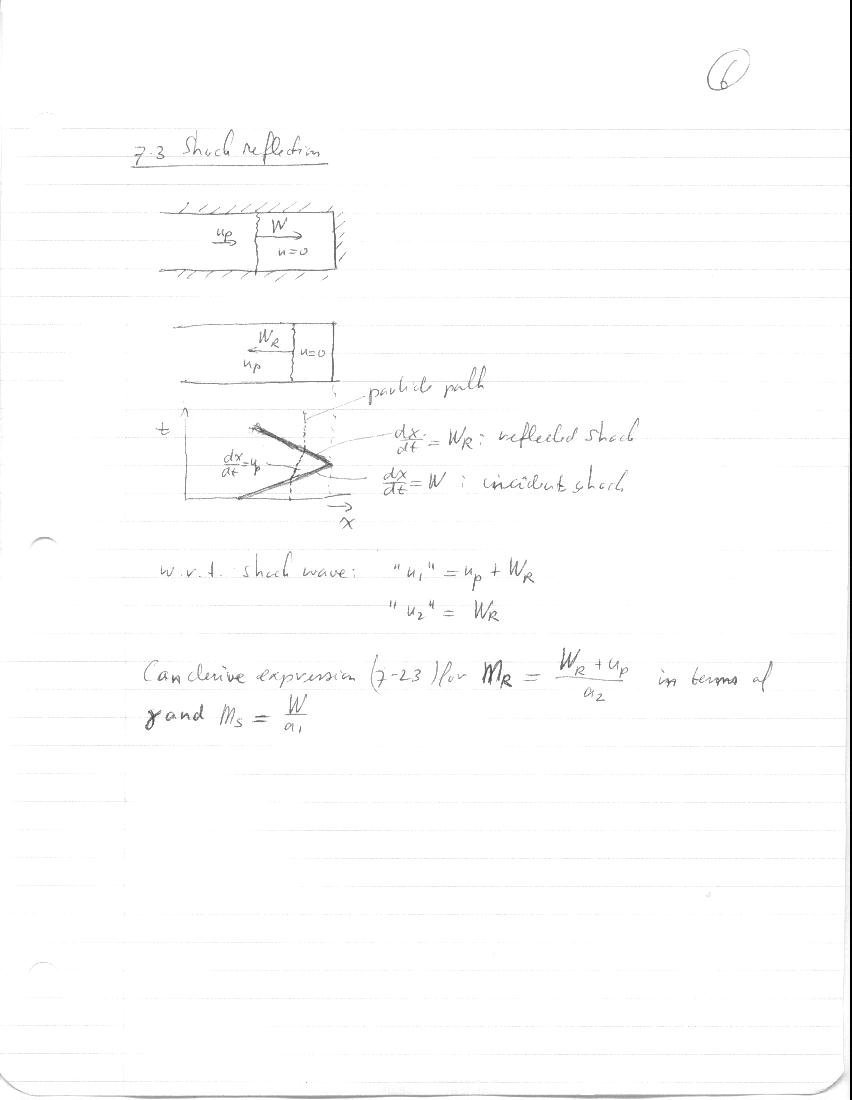 6
7.3 Shock reflection
u_p W
u=0
W_R u=0
u_p
particle path
t
dx/dt = W_R : reflected shock
dx/dt = u_p
dx/dt = W : incident shock
x
w.r.t. shock wave: "u_1" = u_p + W_R
"u_2" = W_R
Can derive expression (7-23) for M_R = (W_R + u_p)/a_2 in terms of
γ and M_s = W/a_1